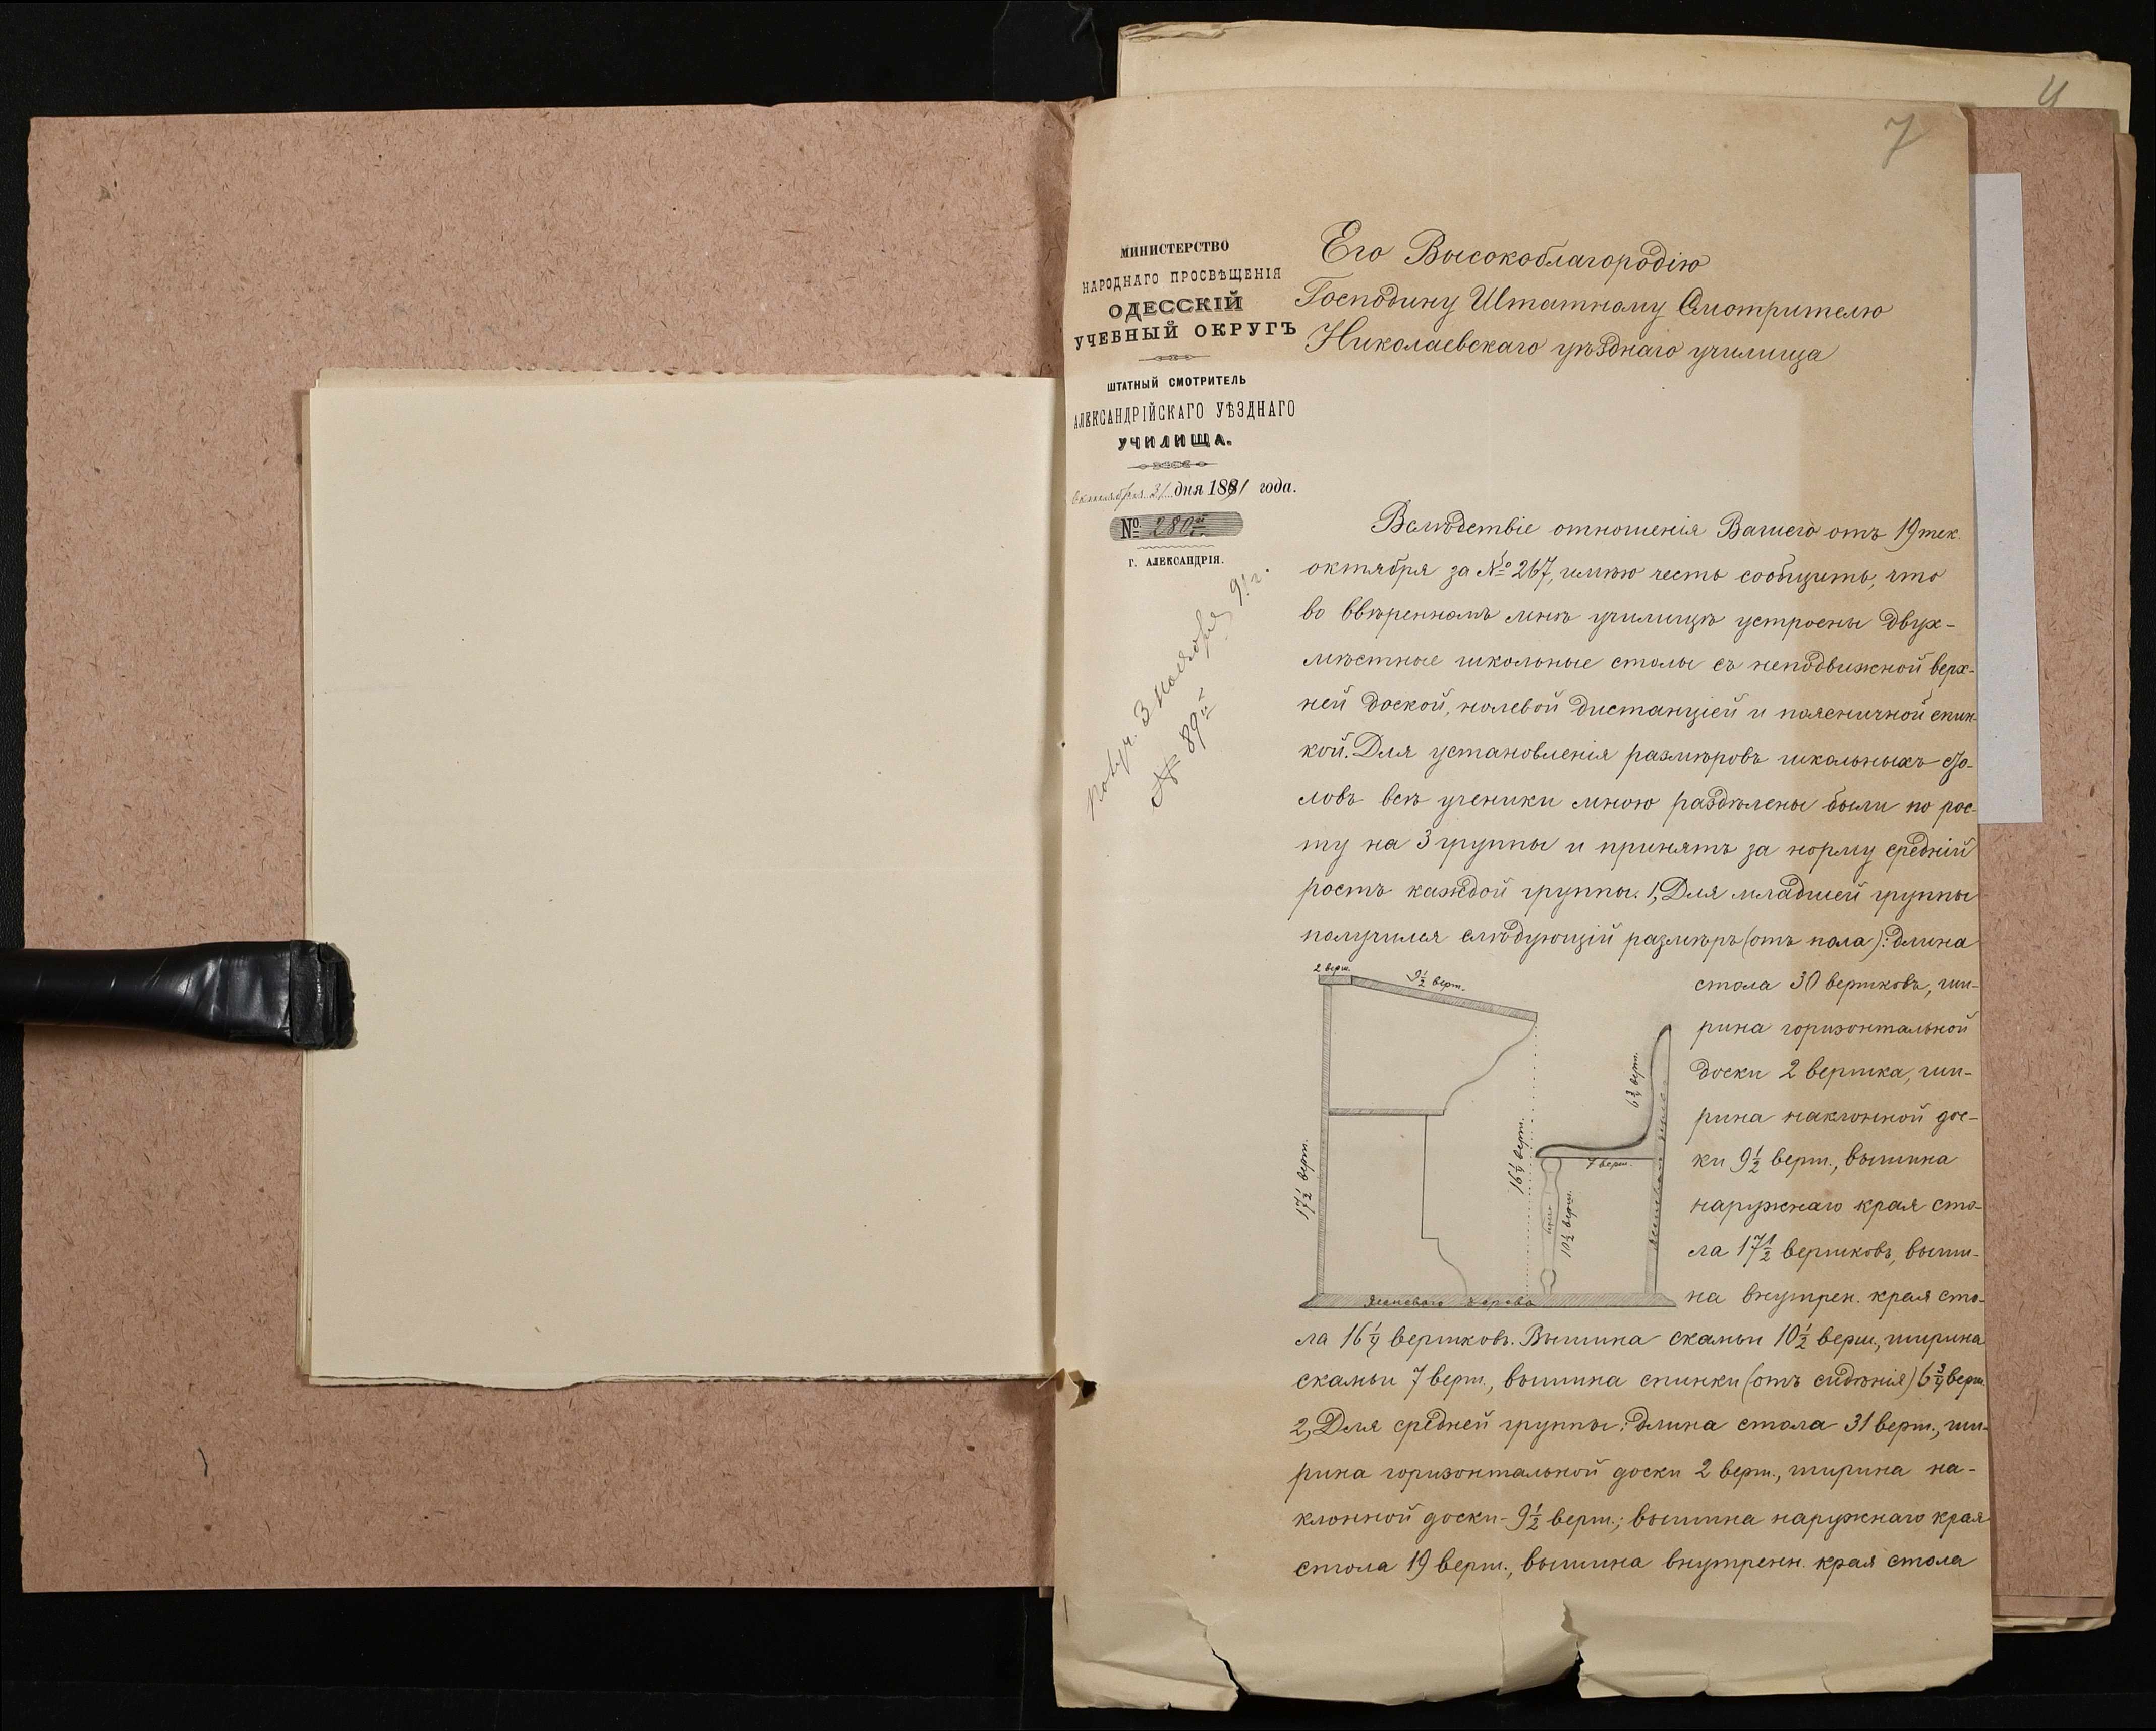 4
7
МИНИСТЕРСТВО
НАРОДНАГО ПРОСВѢЩЕНІЯ
ОДЕССКІЙ
УЧЕБНЫЙ ОКРУГЪ
ШТАТНЫЙ СМОТРИТЕЛЬ
АЛЕКСАНДРІЙСКАГО УѢЗДНАГО
УЧИЛИЩА.
октября 31 дня 1891 года.
№ 280
Г. АЛЕКСАНДРІЯ.
Получ. 3 ноября 91 г.
№ 89
Его Высокоблагородію
Господину Штатному Смотрителю
Николаевскаго уѣзднаго училища
Вслѣдствіе отношенія Вашего отъ 19 тек.
октября за № 267, имѣю честь сообщить, что
во ввѣренномъ мнѣ училищѣ устроены двух-
мѣстные школьные столы съ неподвижной верх-
ней доской, нолевой дистанціей и поясничной спин-
кой. Для установленія размѣровъ школьныхъ сто-
ловъ всѣ ученики мною раздѣлены были по рос-
ту на 3 группы и принятъ за норму средній
ростъ каждой группы. 1, Для младшей группы
получился слѣдующій размѣръ (отъ пола): длина
стола 30 вершковъ, ши-
рина горизонтальной
доски 2 вершка, ши-
рина наклонной дос-
ки 9 1/2 верш., вышина
наружнаго края сто-
ла 17 1/2 вершковъ, выши-
на внутрен. края сто-
2 верш.
9 1/2 верш.
6 3/4 верш.
17 1/2 верш.
16 1/4 верш.
7 верш.
10 1/2 верш.
Ясеневаго дерева
ла 16 1/4 вершковъ. Вышина скамьи 10 1/2 верш., ширина
скамьи 7 верш., вышина спинки (отъ сидѣнія) 6 3/4 верш.
2, Для средней группы: длина стола 31 верш., ши-
рина горизонтальной доски 2 верш., ширина на-
клонной доски - 9 1/2 верш.; вышина наружнаго края
стола 19 верш., вышина внутренн. края стола